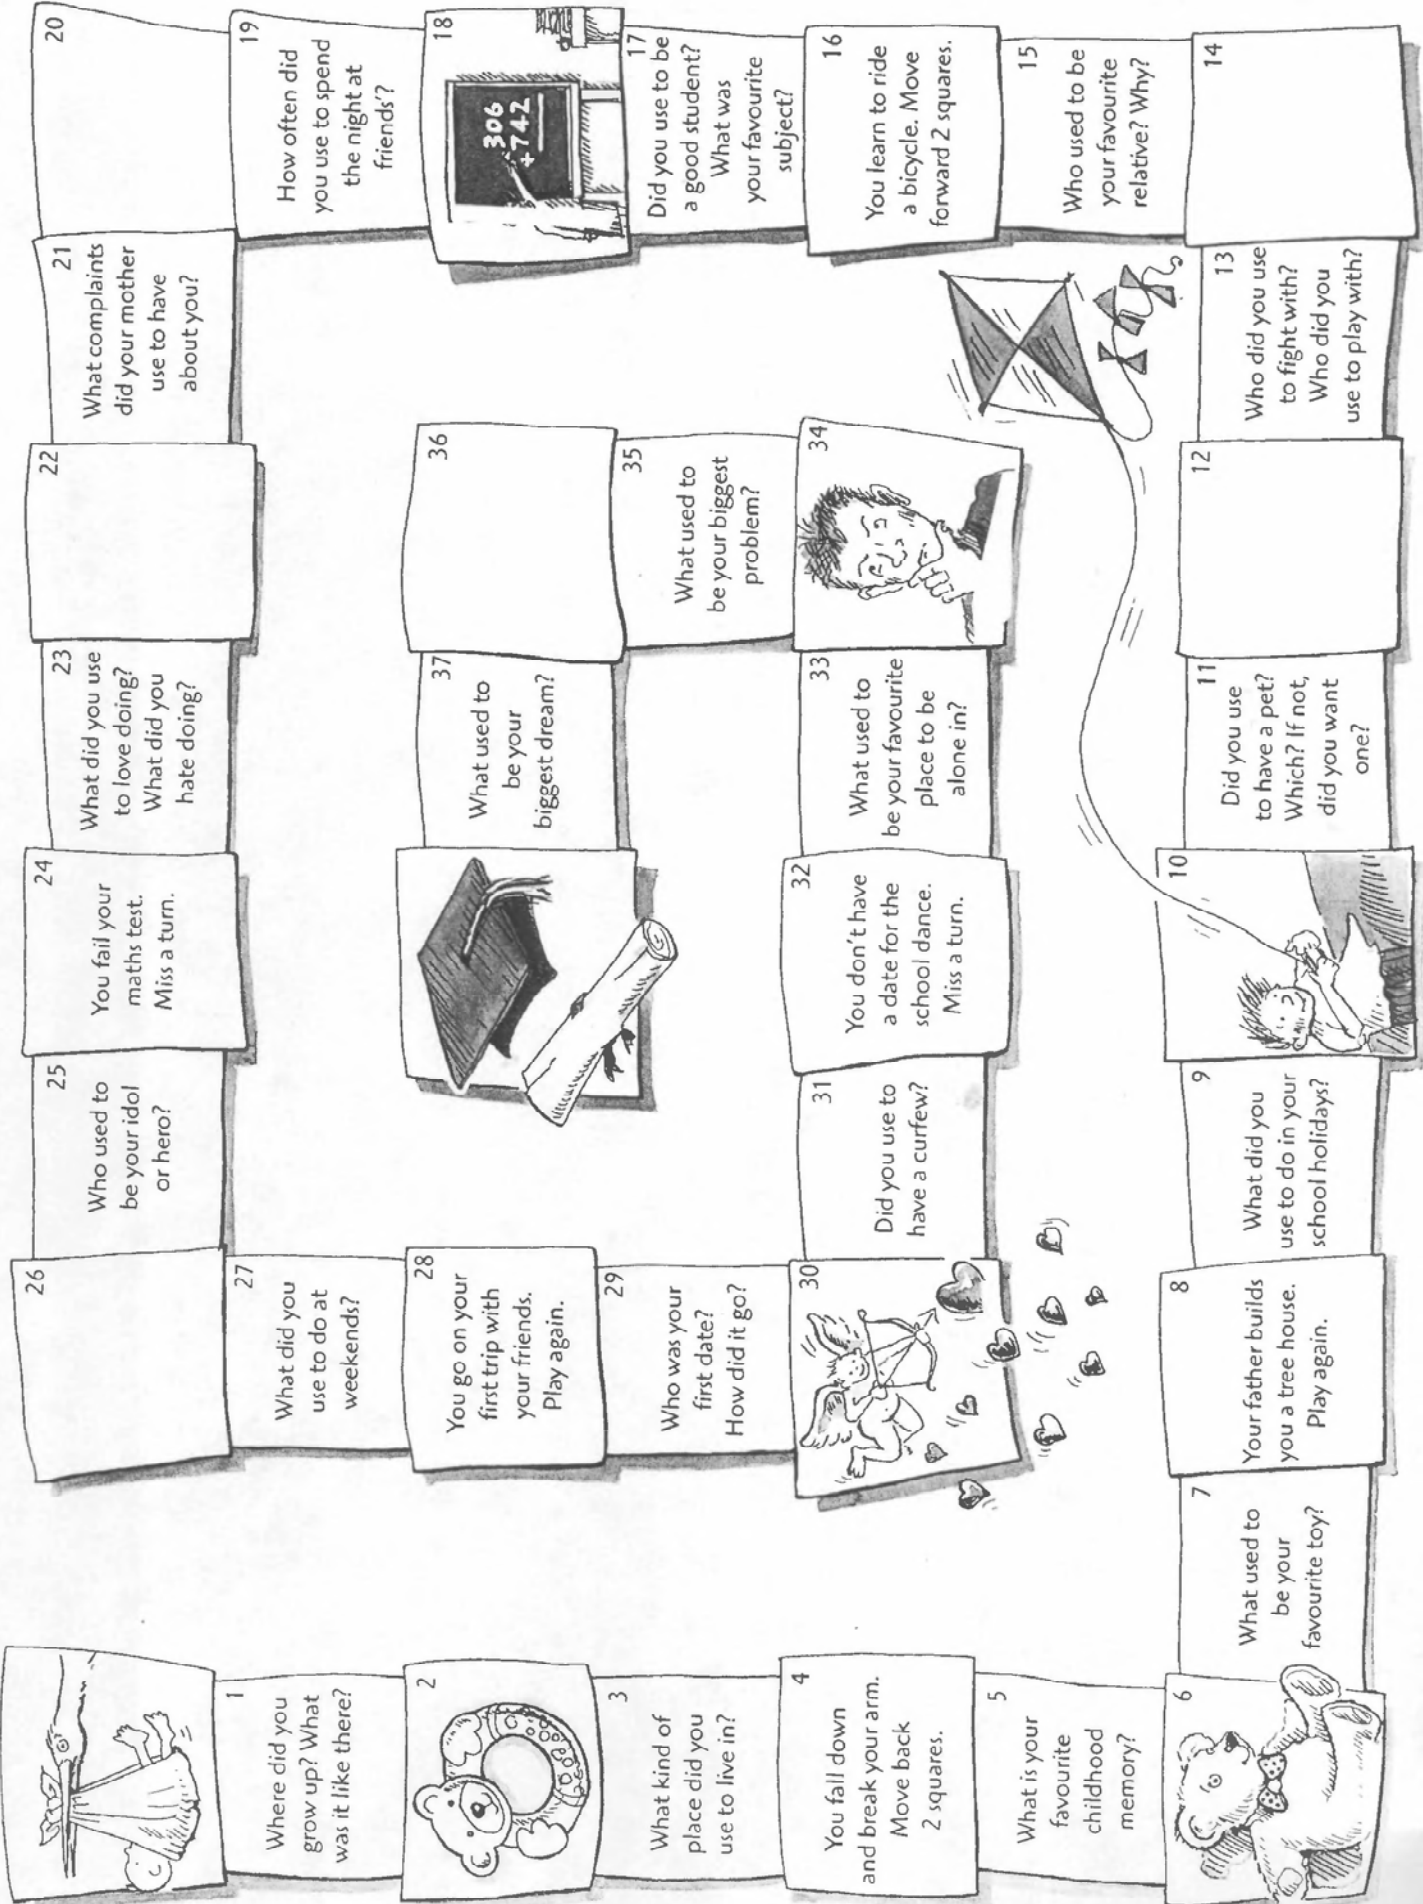 1
Where did you
grow up? What
was it like there?
2
3
What kind of
place did you
use to live in?
4
You fall down
and break your arm.
Move back
2 squares.
5
What is your
favourite
childhood
memory?
6
7
What used to
be your
favourite toy?
8
Your father builds
you a tree house.
Play again.
9
What did you
use to do in your
school holidays?
10
11
Did you use
to have a pet?
Which? If not,
did you want
one?
12
13
Who did you use
to fight with?
Who did you
use to play with?
14
15
Who used to be
your favourite
relative? Why?
16
You learn to ride
a bicycle. Move
forward 2 squares.
17
Did you use to be
a good student?
What was
your favourite
subject?
18
306
+742
19
How often did
you use to spend
the night at
friends'?
20
21
What complaints
did your mother
use to have
about you?
22
23
What did you use
to love doing?
What did you
hate doing?
24
You fail your
maths test.
Miss a turn.
25
Who used to
be your idol
or hero?
26
27
What did you
use to do at
weekends?
28
You go on your
first trip with
your friends.
Play again.
29
Who was your
first date?
How did it go?
30
31
Did you use to
have a curfew?
32
You don't have
a date for the
school dance.
Miss a turn.
33
What used to
be your favourite
place to be
alone in?
34
35
What used to
be your biggest
problem?
36
37
What used to
be your
biggest dream?